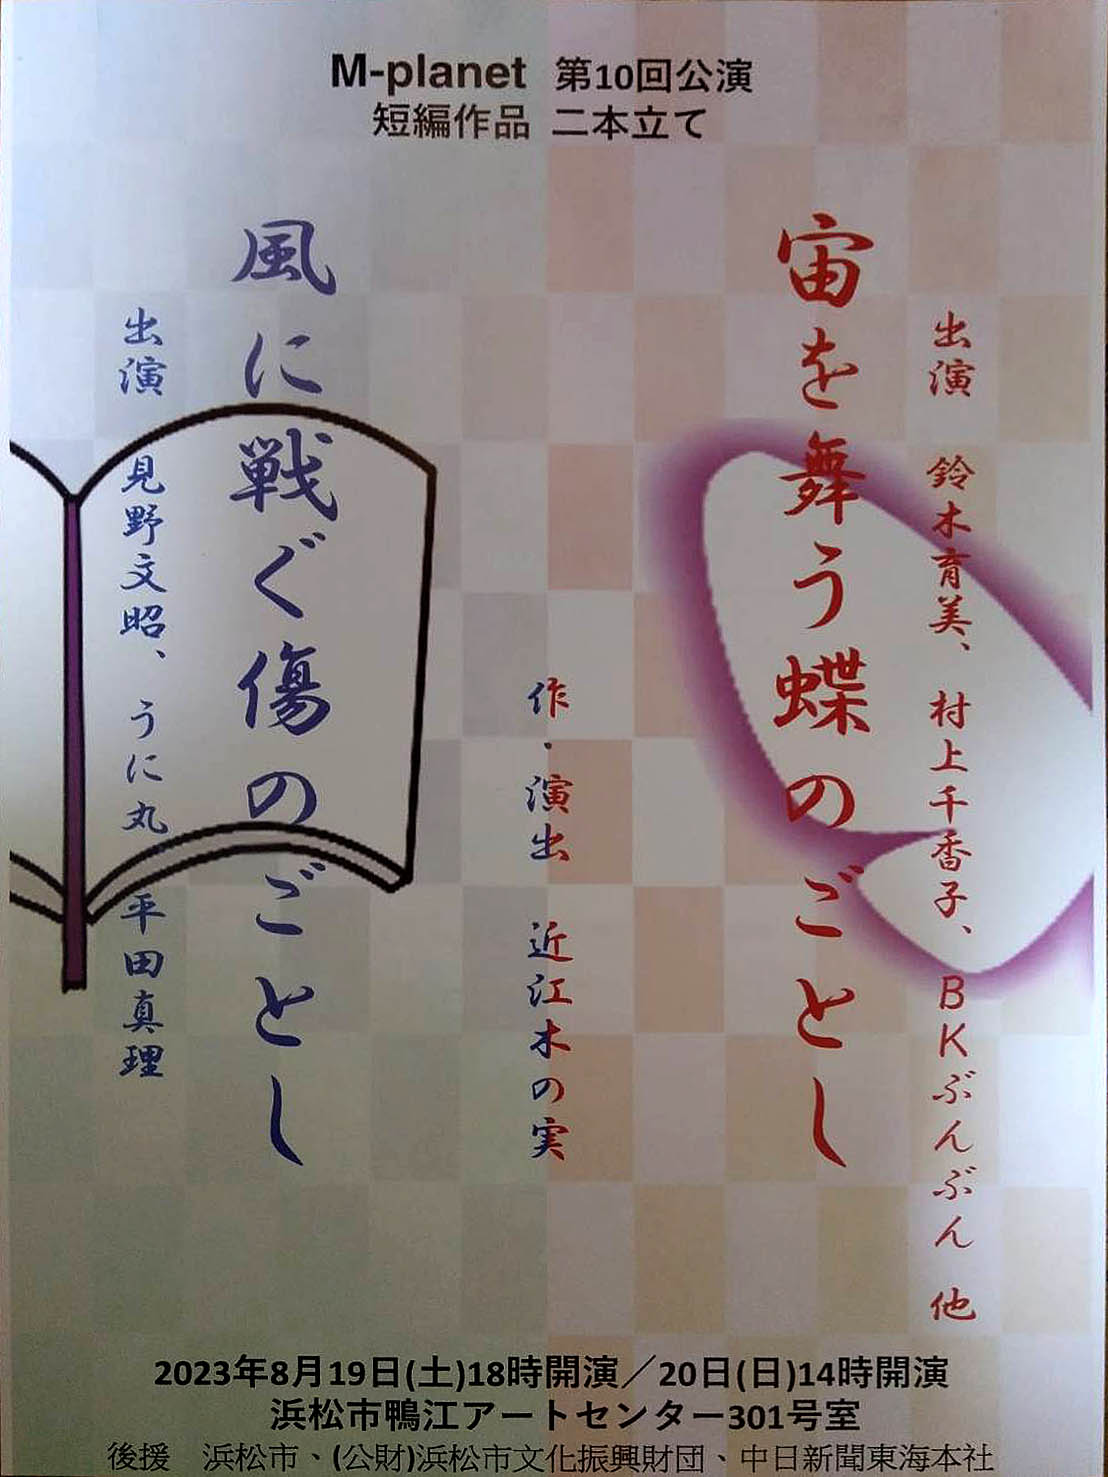 M-planet 第10回公演
短編作品 二本立て
出演 鈴木育美、村上千香子、BKぶんぶん 他
宙を舞う蝶のごとし
作・演出 近江木の実
風に戦ぐ傷のごとし
出演 見野文昭、うに丸、平田真理
2023年8月19日(土)18時開演／20日(日)14時開演
浜松市鴨江アートセンター301号室
後援 浜松市、(公財)浜松市文化振興財団、中日新聞東海本社